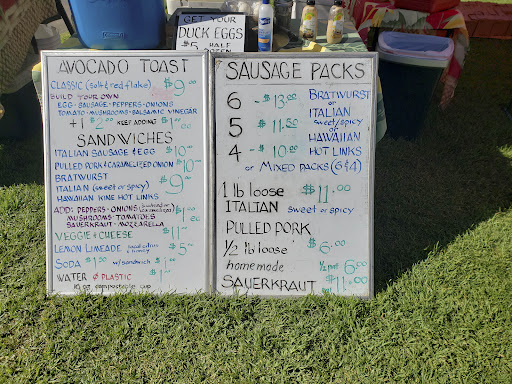 GET YOUR
DUCK EGGS
$5 HALF
DOZEN
AVOCADO TOAST
CLASSIC (salt & red flake) $9.00
BUILD YOUR OWN
EGG-SAUSAGE-PEPPERS-ONIONS
TOMATO-MUSHROOMS-BALSAMIC VINEGAR
+1 $2.00 KEEP ADDING $1.00
SANDWICHES
ITALIAN SAUSAGE & EGG $10
PULLED PORK & CARAMELIZED ONION $10
BRATWURST
ITALIAN (sweet or spicy) $9.00
HAWAIIAN KINE HOT LINKS
ADD: PEPPERS-ONIONS
MUSHROOMS-TOMATOES $1.00 ea
SAUERKRAUT-MOZZARELLA
VEGGIE & CHEESE $11
LEMON LIMEADE $5
SODA $1.50 w/sandwich $1
WATER Ø PLASTIC $1
SAUSAGE PACKS
6 - $13.00 BRATWURST
or
5 - $11.50 ITALIAN
sweet/spicy
or
HAWAIIAN
4 - $10.00 HOT LINKS
or MIXED PACKS (6 & 4)
1 lb loose $11.00
ITALIAN sweet or spicy
PULLED PORK
1/2 lb loose $6.00
homemade 1/2 pint 6.00
SAUERKRAUT $11.00